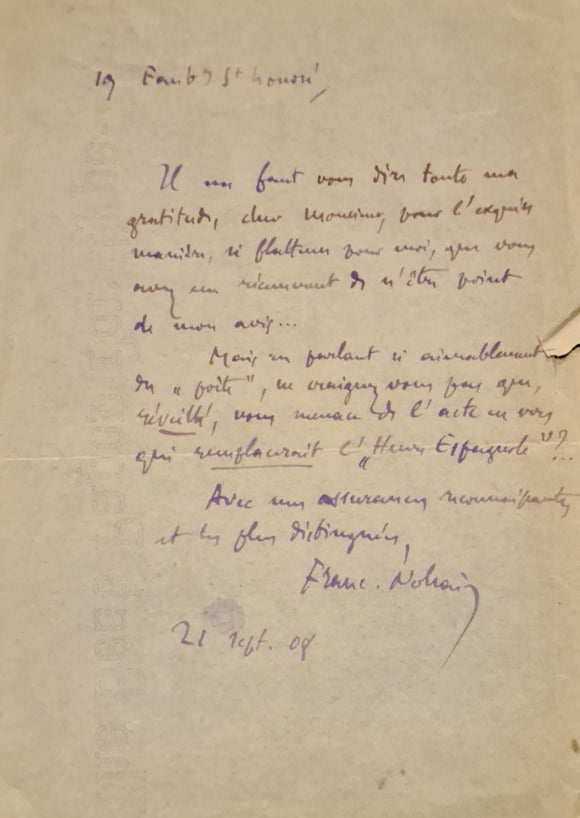 19 Faubg St honoré,
Il me faut vous dire toute ma
gratitude, cher Monsieur, pour l'exquise
manière, si flatteuse pour moi, que vous
avez eu récemment de n'être point
de mon avis...
Mais en parlant si aimablement
du „ poète ", ne craignez vous pas que,
réveillé, vous menace de l'acte en vers
qui remplacerait l'„ Heure Espagnole "?...
Avec mes assurances reconnaissantes
et les plus distinguées,
Franc. Nohain
21 sept. 08